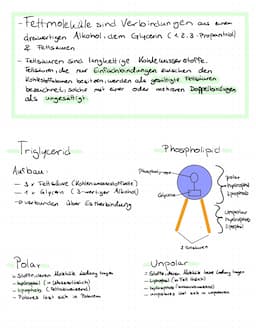 - Fettmoleküle sind Verbindungen aus einem
dreiwertigen Alkohol, dem Glycerin (1,2,3-Propantriol)
& Fettsäuren
- Fettsäuren sind langkettige Kohlenwasserstoffe.
Fettsäuren, die nur Einfachbindungen zwischen den
Kohlenstoffatomen besitzen, werden als gesättigte Fettsäuren
bezeichnet, solche mit einer oder mehreren Doppelbindungen
als ungesättigt.
Triglycerid
Aufbau:
- 3 x Fettsäure (Kohlenwasserstoffkette)
- 1 x Glycerin (3-wertiger Alkohol)
→ verbunden über Esterbindung
Phospholipid
Phosphat
Glycerin
polar
hydrophil
lipophob
unpolar
hydrophob
lipophil
2 Fettsäuren
Polar
- Stoffe, deren Moleküle Ladung tragen
- hydrophil (= wasserlöslich)
- lipophob (= fettabweisend)
- Polares löst sich in Polarem
Unpolar
- Stoffe, deren Moleküle keine Ladung tragen
- lipophil (= fettlöslich)
- hydrophob (= wasserabweisend)
- unpolares löst sich in unpolarem